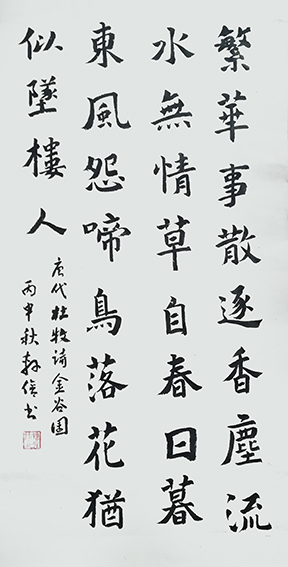 繁華事散逐香塵流
水無情草自春日暮
東風怨啼鳥落花猶
似墜樓人
唐代杜牧诗金谷園
丙申秋